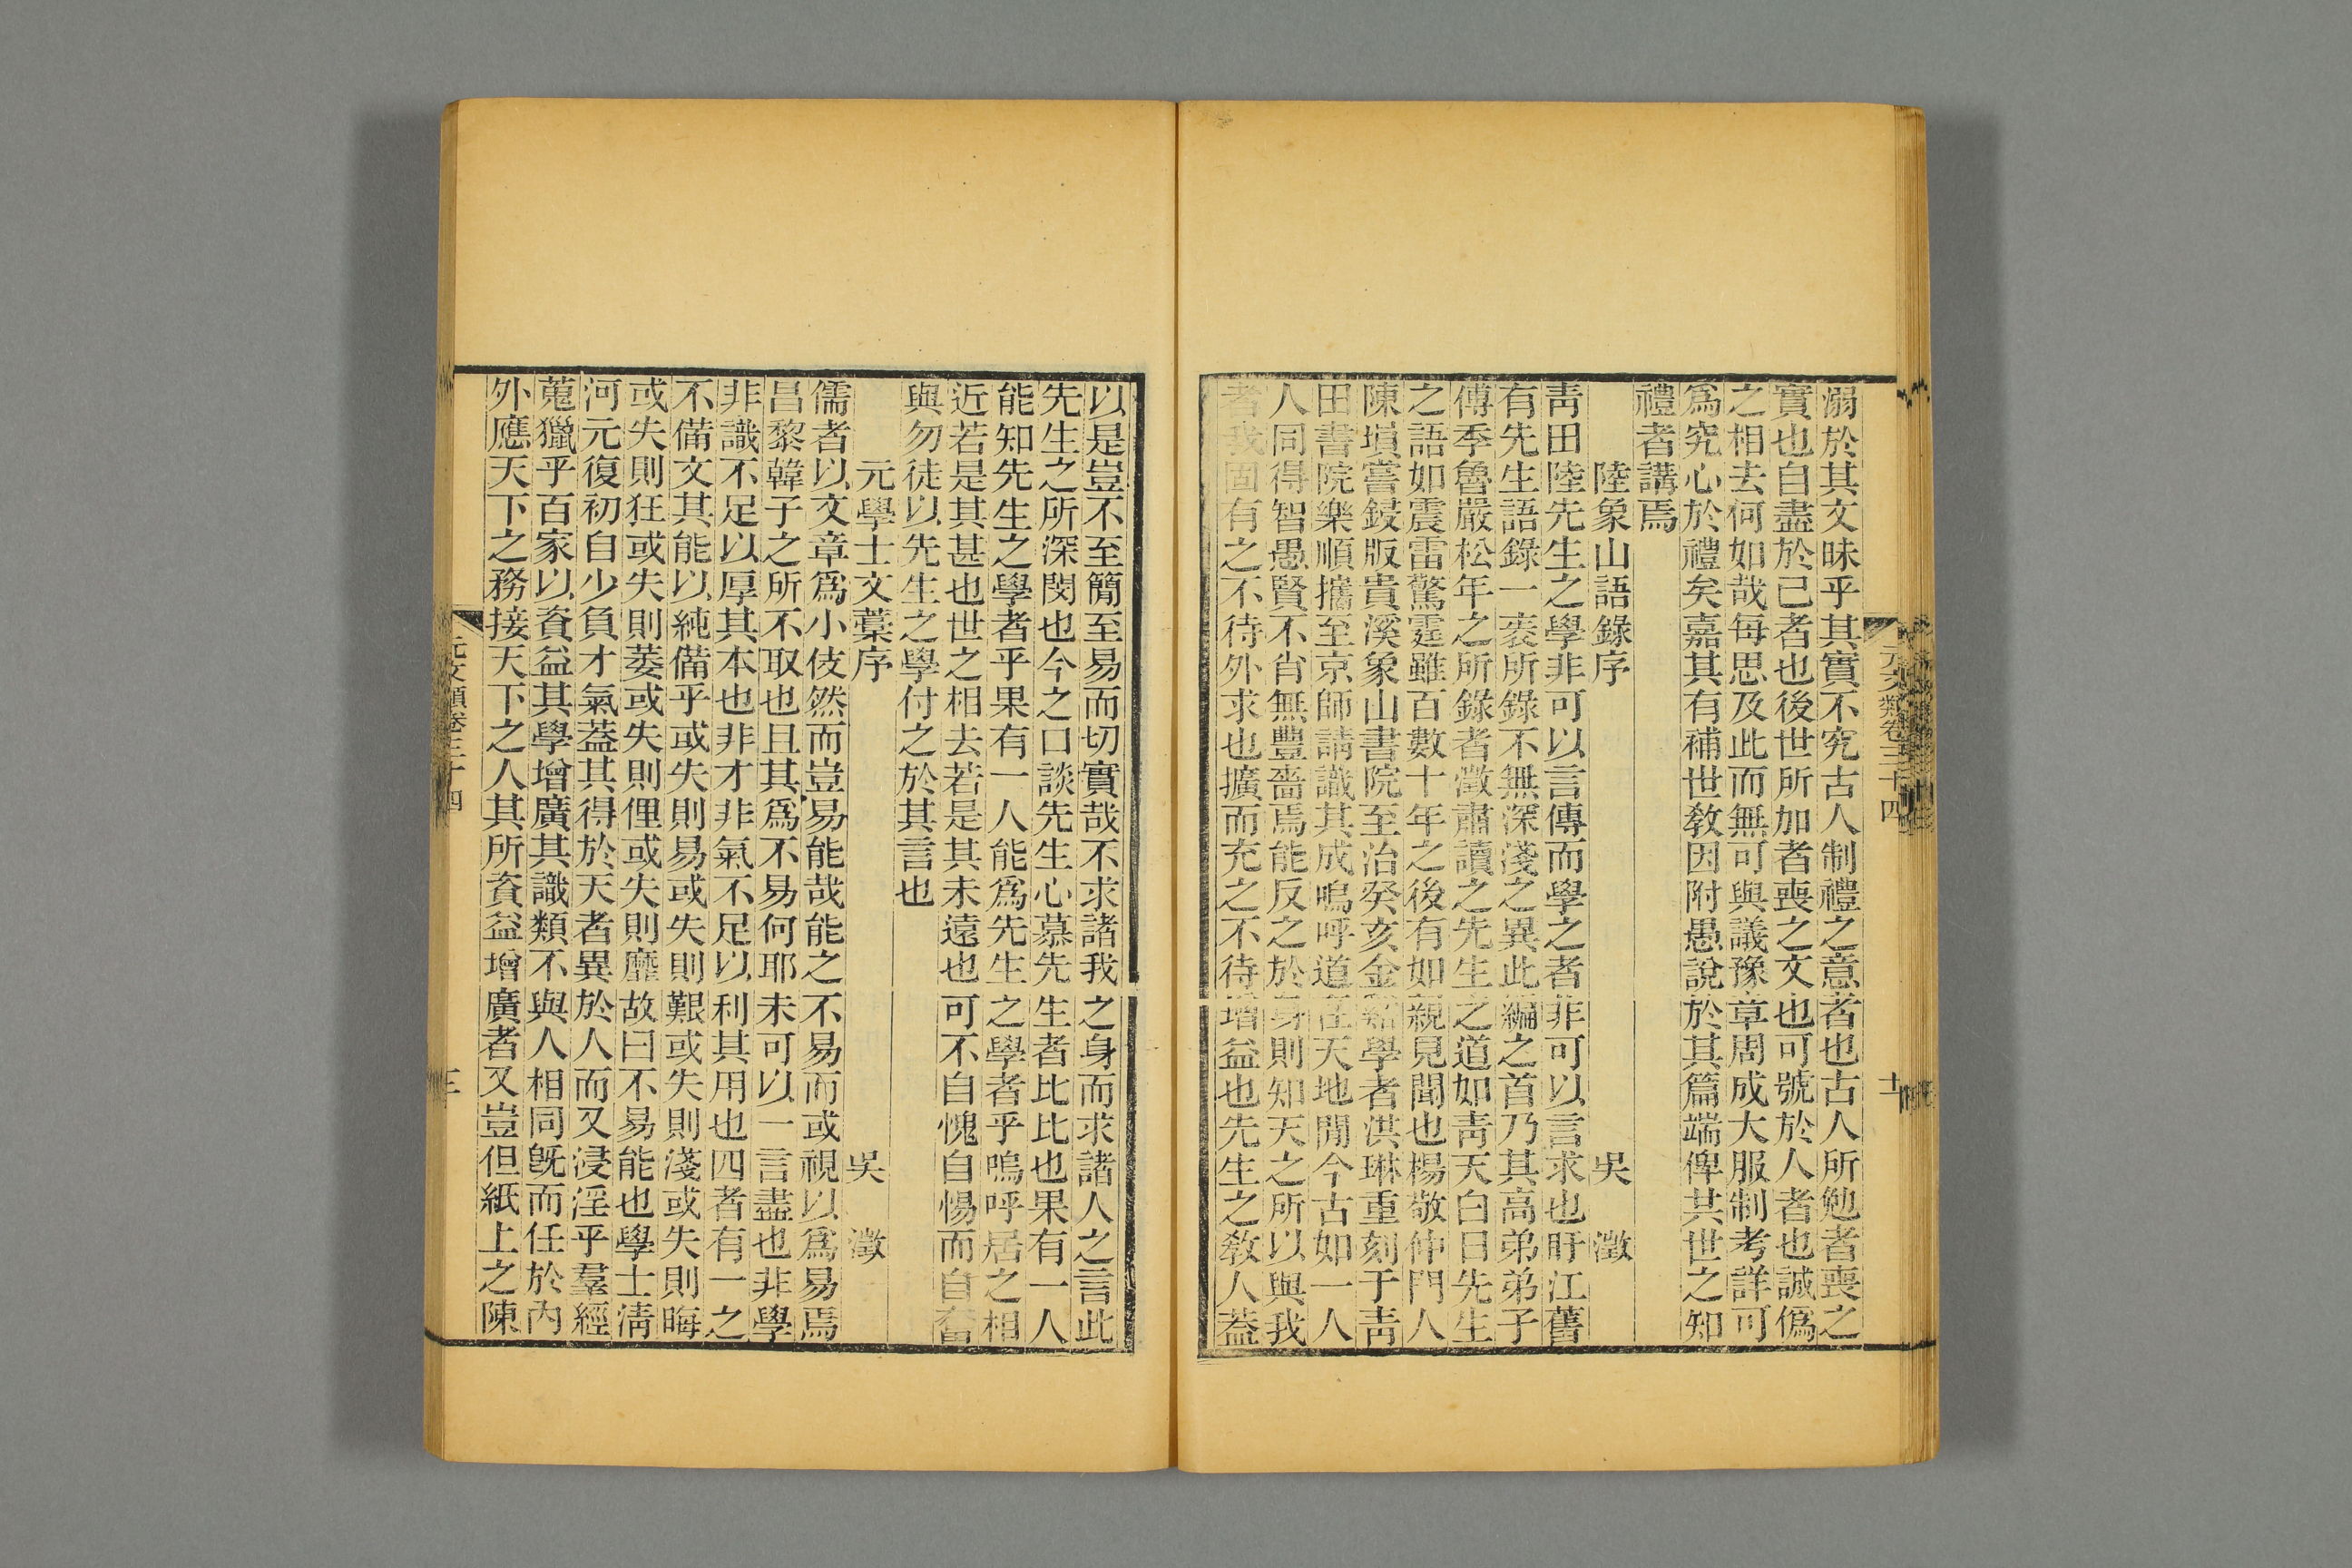 元文類卷三十四
溺於其文昧乎其實不究古人制禮之意者也古人所勉者喪之
實也自盡於已者也後世所加者喪之文也可號於人者也誠僞
之相去何如哉每思及此而無可與議豫章周成大服制考詳可
爲究心於禮矣嘉其有補世敎因附愚說於其篇端俾其世之知
禮者講焉
陸象山語錄序 吳 澂
靑田陸先生之學非可以言傳而學之者非可以言求也盱江舊
有先生語錄一袠所錄不無深淺之異此編之首乃其高弟弟子
傅季魯嚴松年之所錄者澂肅讀之先生之道如靑天白日先生
之語如震雷驚霆雖百數十年之後有如親見聞也楊敬仲門人
陳塤嘗鋟版貴溪象山書院至治癸亥金谿學者洪琳重刻于靑
田書院樂順攜至京師請識其成嗚呼道在天地閒今古如一人
人同得智愚賢不肖無豐嗇焉能反之於身則知天之所以與我
者我固有之不待外求也擴而充之不待增益也先生之敎人蓋
以是豈不至簡至易而切實哉不求諸我之身而求諸人之言此
先生之所深閔也今之口談先生心慕先生者比比也果有一人
能知先生之學者乎果有一人能爲先生之學者乎嗚呼居之相
近若是其甚也世之相去若是其未遠也可不自愧自惕而自奮
與勿徒以先生之學付之於其言也
元學士文藁序 吳 澂
儒者以文章爲小伎然而豈易能哉能之不易而或視以爲易焉
昌黎韓子之所不取也且其爲不易何耶未可以一言盡也非學
非識不足以厚其本也非才非氣不足以利其用也四者有一之
不備文其能以純備乎或失則易或失則艱或失則淺或失則晦
或失則狂或失則萎或失則俚或失則靡故曰不易能也學士淸
河元復初自少負才氣蓋其得於天者異於人而又浸淫乎羣經
蒐獵乎百家以資益其學增廣其識類不與人相同旣而任於內
外應天下之務接天下之人其所資益增廣者又豈但紙上之陳
元文類卷三十四